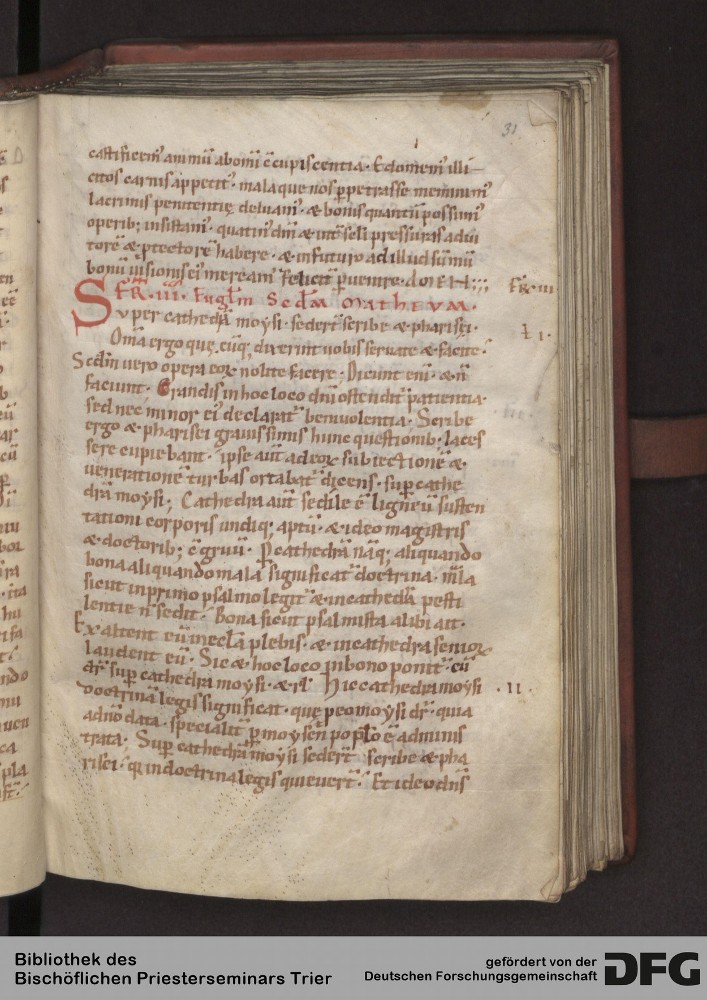 31
castificem' animū abomī ccupiscentia. Edomem' illi
citos carnis appetit'. malaque nos ppetrasse meminim'
lacrimis penitentię deluam'. & bonis quantū possum'
operib; insistam'. quatin' dm̄ & int seli pressuras adiu
torē & ptectorē habere. & infuturo ad illud sūmū
bonū uisionis ei' meream̄ feliciť puenire. 
FR. III. Euglm Scdm Matheum.
FR. III
Super cathedrā moysi. sederť scribe & pharisei.
I.
Om̄a ergo quę cūq; dixerint uobis seruate & facite.
Scdm vero opera eoꝝ nolite facere; Dicunt eni. & n̄
faciunt. Grandis in hoc loco dn̄i ostendiť patientia.
sed nec minor ei' declarať beniuolentia. Scribe
ergo & pharisei grauissimis hunc questionib. laces
sere cupiebant. ipse aūt ad eoꝝ subiectionē &
uenerationē turbas ortabať dicens. sup cathe
drā moysi; Cathedra aūt sedile ē ligneū susten
tationi corporis undiq; aptū. & ideo magistris
& doctorib; cgruū. P cathedrā nāq; aliquando
bona aliquando mala significať doctrina. mla
sicut in primo psalmo legiť & in cathedrā pesti
lentie n̄ sedit. Bona sicut psalmista alibi ait.
Exaltent eū in ecla plebis. & in cathedra senioꝝ
laudent eū. Sic & hoc loco in bono poniť. cū
dr̄ sup cathedra moysi. & rl. Hic cathedra moysi
II.
doctrinā legis significat. quę p eo moysi dr̄. quia
a dn̄o data. specialiť p moysen poplo ē adminis
trata. Sup cathedrā moysi sederť scribe & pha
risei. q in doctrina legis quieuerť. Et ideo dn̄s
Bibliothek des
Bischöflichen Priesterseminars Trier
gefördert von der
Deutschen Forschungsgemeinschaft
DFG